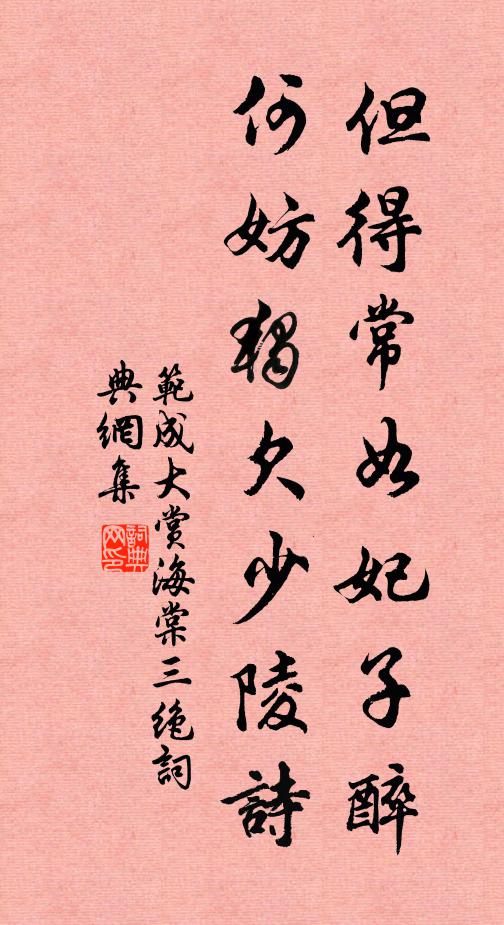 但得常如妃子醉
何妨獨欠少陵詩
範成大賞海棠三絶詞
典網集
詞典
网印